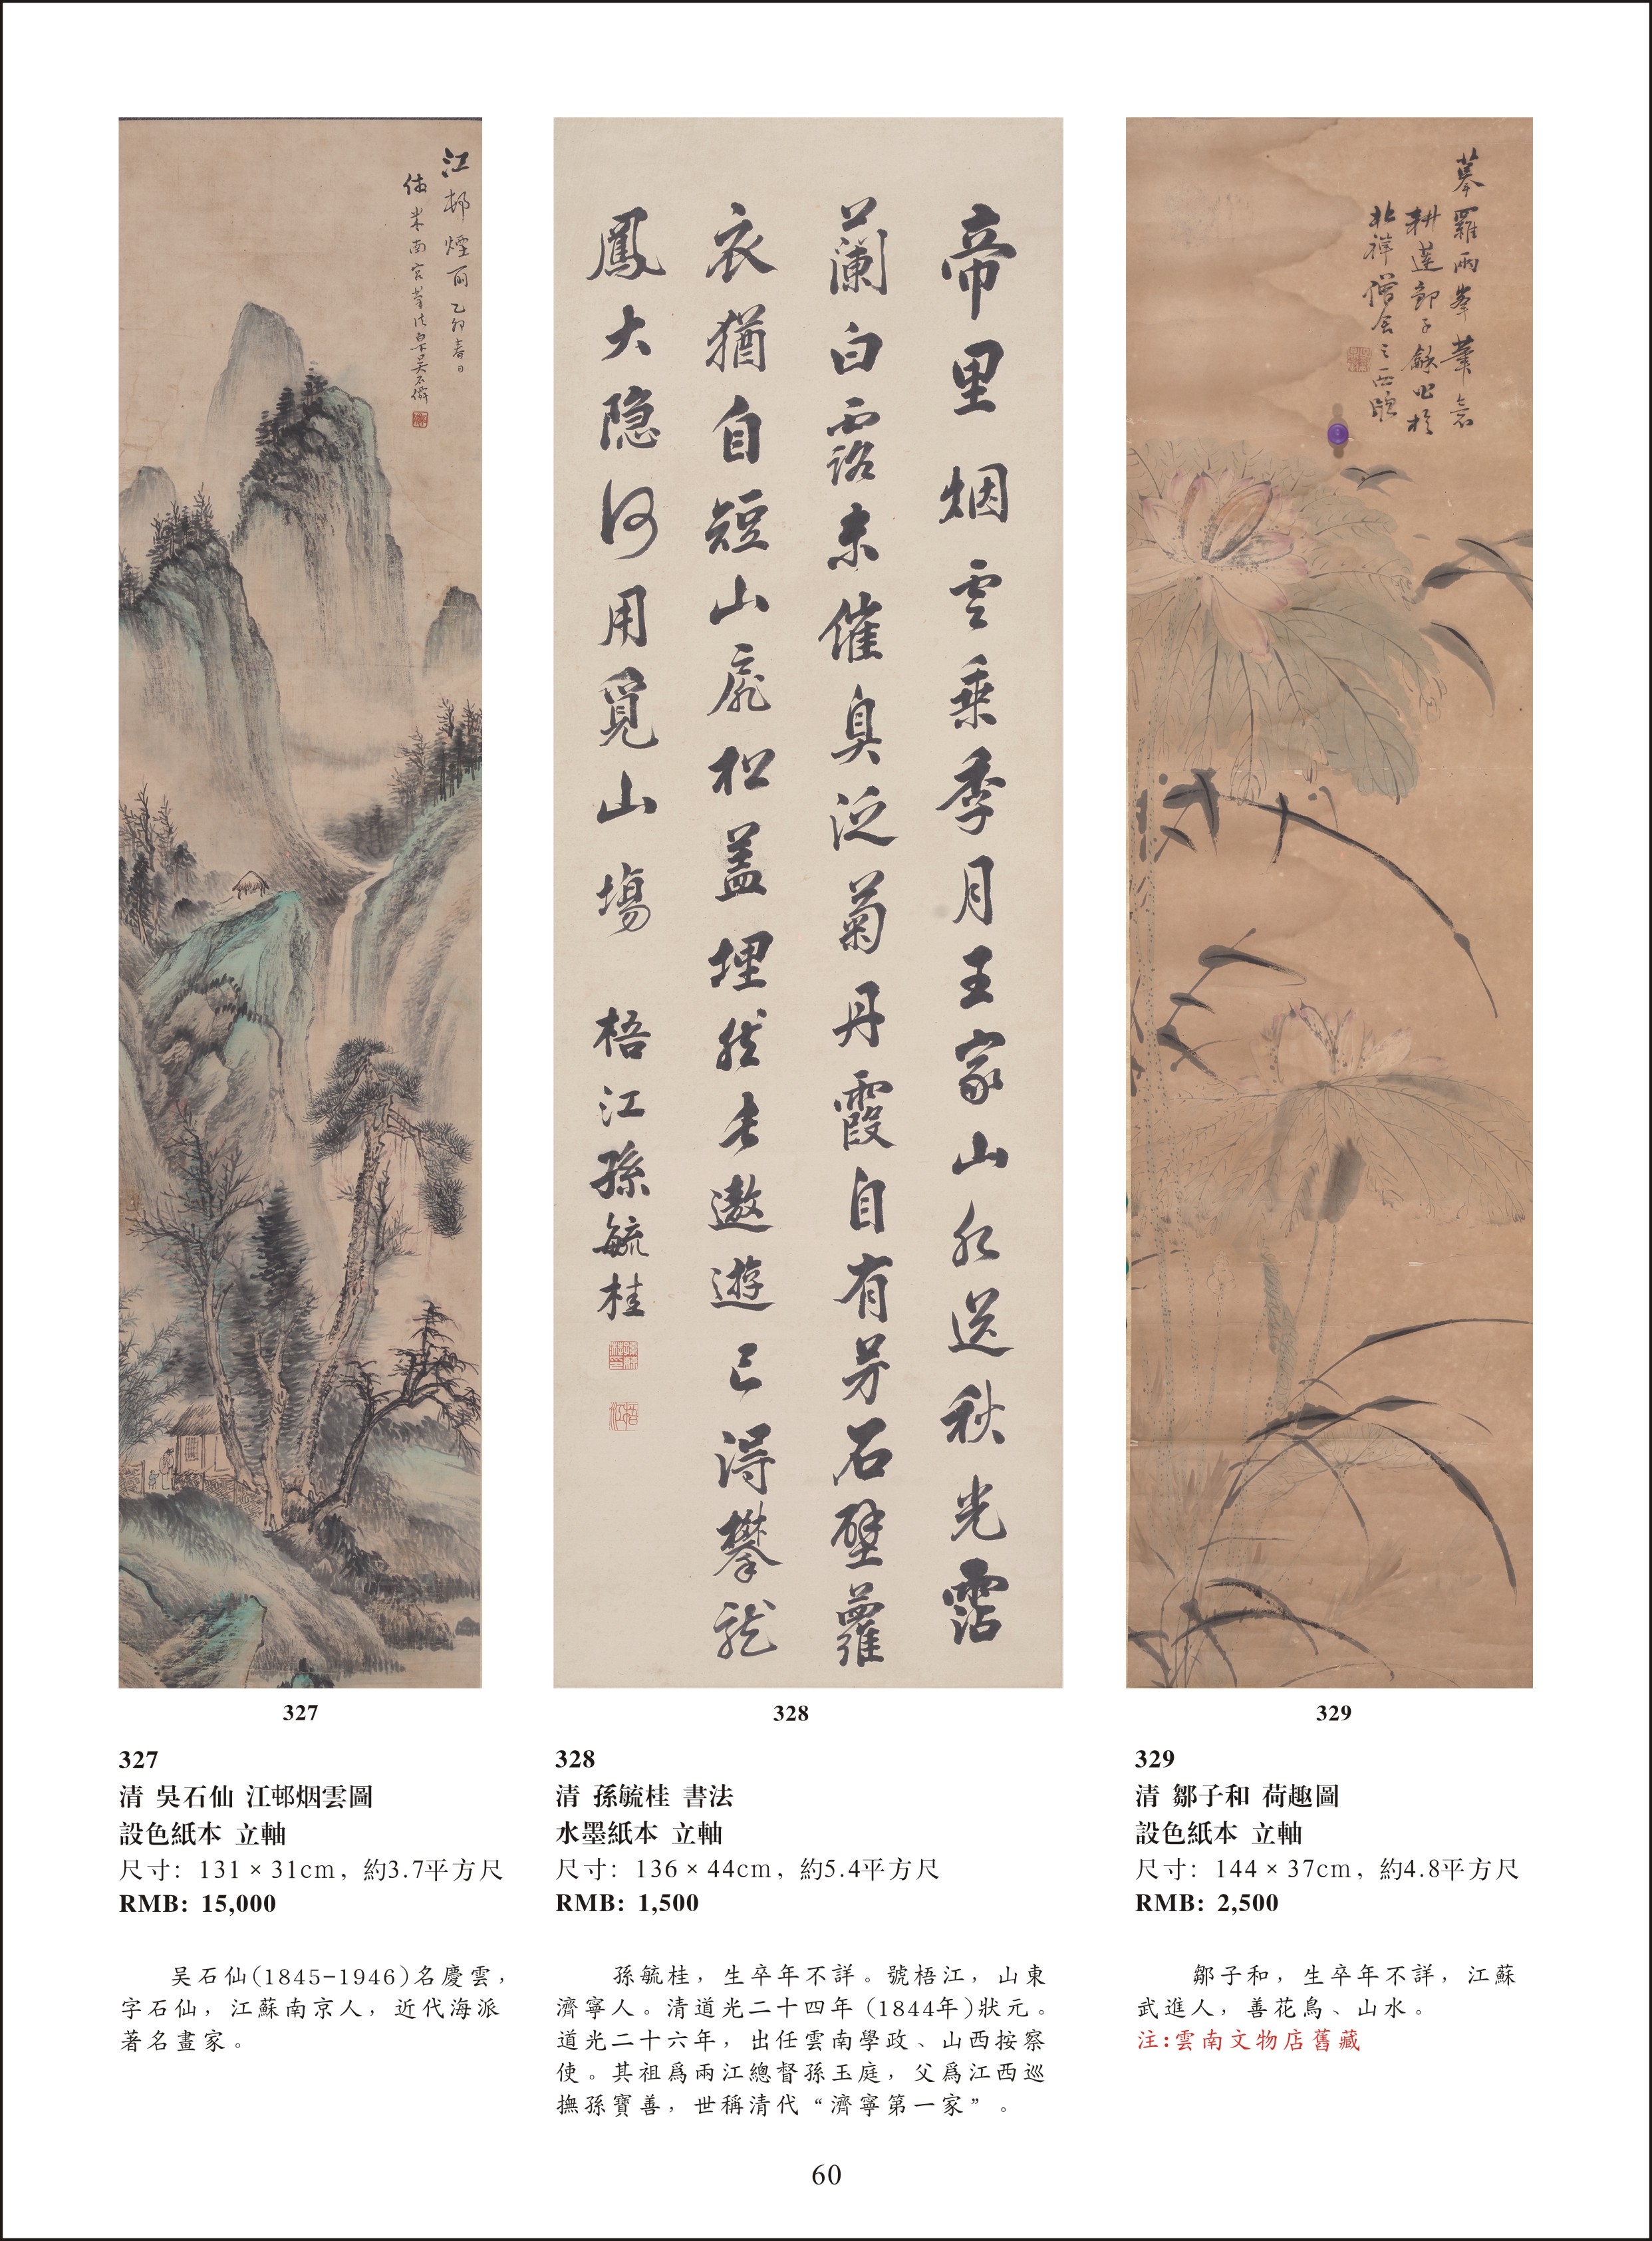 江邨煙雨 乙卯春日
帝里烟雲乘季月王家山水送秋光霑
蘭白露未催臭泛菊丹霞自有芳石壁蘿
衣猶自短山扉松蓋埋然去遨遊已得攀龍
鳳大隐何用覓山塲 梧江孫毓桂
耕蓮鄒子
北禅僧舍之西牕
327
328
329
327
清 吳石仙 江邨烟雲圖
設色紙本 立軸
尺寸：131×31cm，約3.7平方尺
RMB：15,000
吴石仙(1845-1946)名慶雲，
字石仙，江蘇南京人，近代海派
著名畫家。
328
清 孫毓桂 書法
水墨紙本 立軸
尺寸：136×44cm，約5.4平方尺
RMB：1,500
孫毓桂，生卒年不詳。號梧江，山東
濟寧人。清道光二十四年（1844年)狀元。
道光二十六年，出任雲南學政、山西按察
使。其祖爲兩江總督孫玉庭，父爲江西巡
撫孫寶善，世稱清代“濟寧第一家”。
329
清 鄒子和 荷趣圖
設色紙本 立軸
尺寸：144×37cm，約4.8平方尺
RMB：2,500
鄒子和，生卒年不詳，江蘇
武進人，善花鳥、山水。
注：雲南文物店舊藏
60